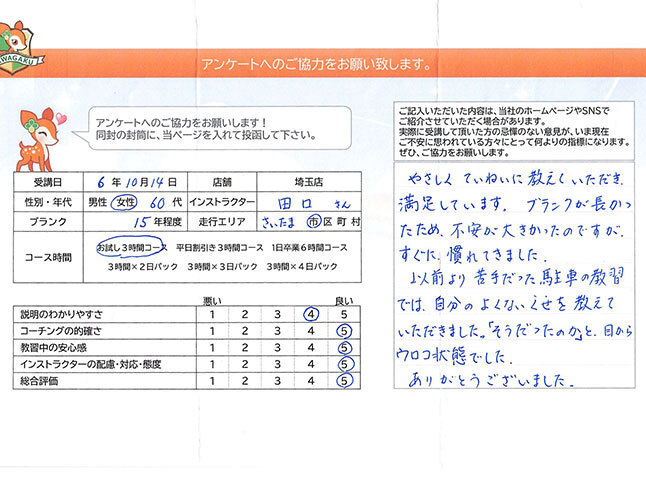 WAGAKU
アンケートへのご協力をお願い致します。
アンケートへのご協力をお願いします！
同封の封筒に、当ページを入れて投函して下さい。
受講日 6年10月14日 店舗 埼玉店
性別・年代 男性 女性 60代 インストラクター 田口 さん
ブランク 15年程度 走行エリア さいたま 市区町村
コース時間 お試し3時間コース 平日割引き3時間コース 1日卒業6時間コース
3時間×2日パック 3時間×3日パック 3時間×4日パック
悪い 良い
説明のわかりやすさ 1 2 3 4 5
コーチングの的確さ 1 2 3 4 5
教習中の安心感 1 2 3 4 5
インストラクターの配慮・対応・態度 1 2 3 4 5
総合評価 1 2 3 4 5
ご記入いただいた内容は、当社のホームページやSNSで
ご紹介させていただく場合があります。
実際に受講して頂いた方の忌憚のない意見が、いま現在
ご不安に思われている方々にとって何よりの指標になります。
ぜひ、ご協力をお願いします。
やさしく ていねいに 教えて いただき、
満足しています。 ブランクが長かっ
たため、不安が大きかったのですが、
すぐに、慣れてきました。
以前より 苦手だった 駐車の教習
では、自分の よくない くせを 教えて
いただきました。「そうだったのか」と、目から
ウロコ状態でした。
ありがとうございました。